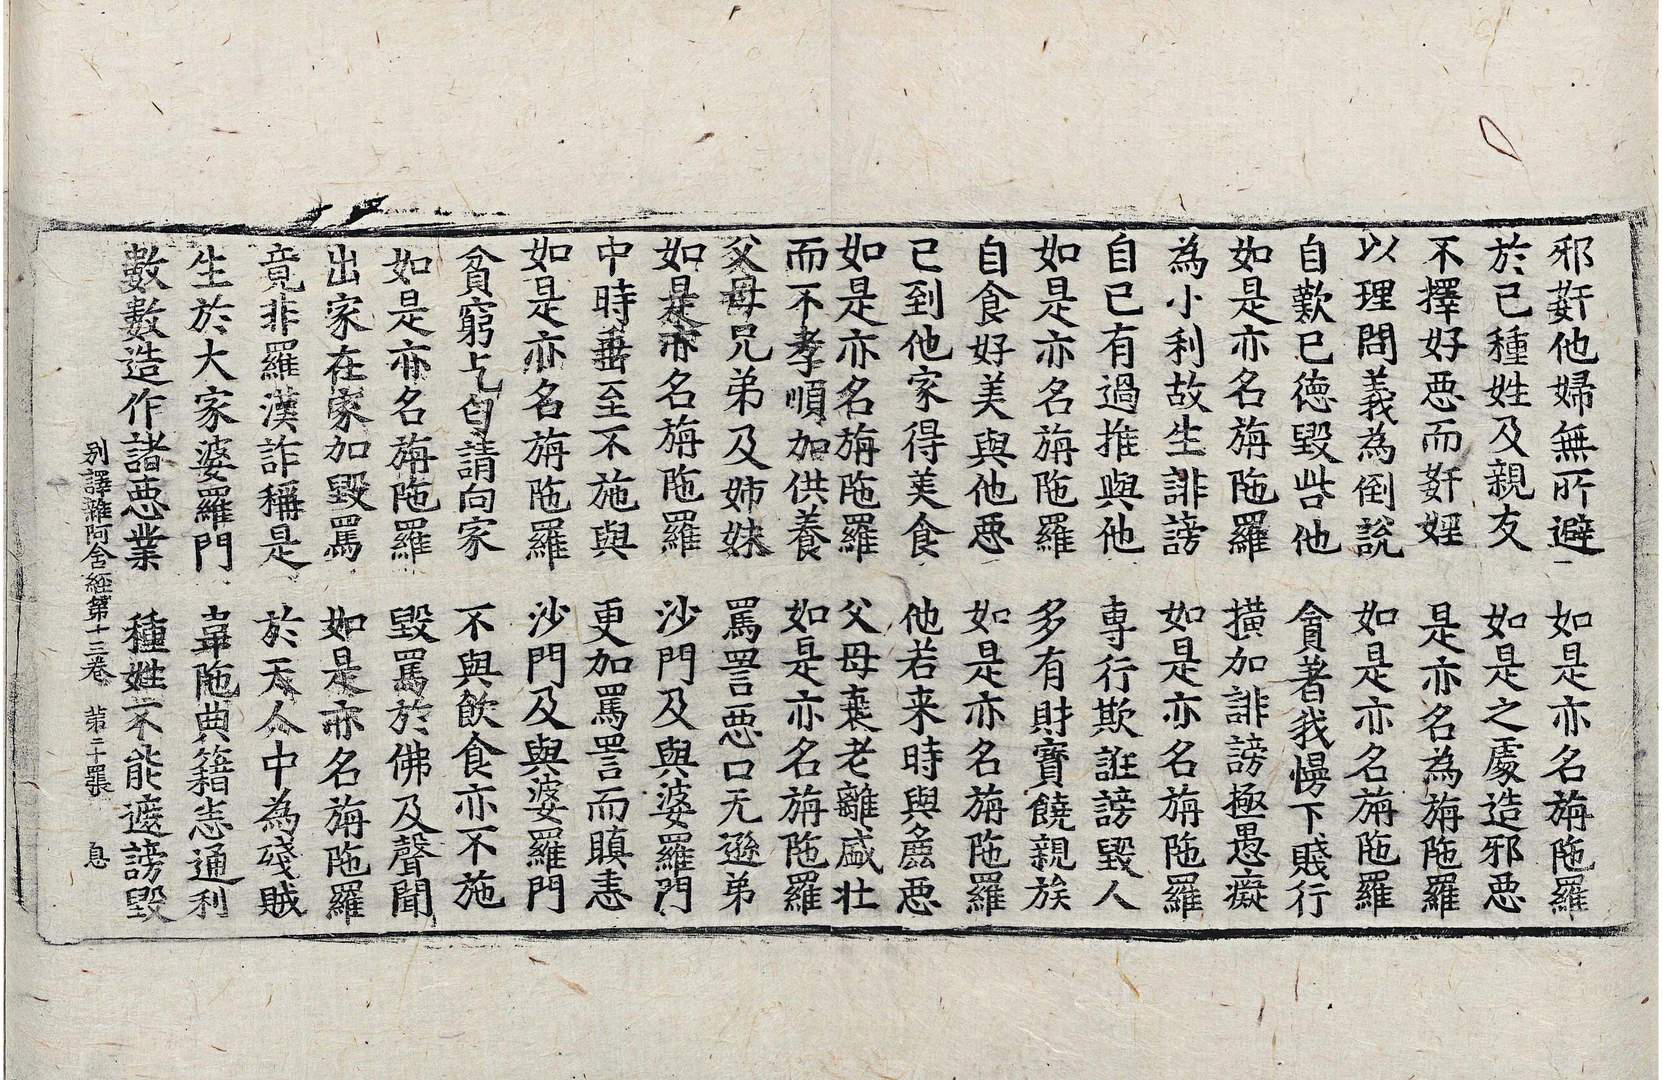 邪姧他婦無所避　如是亦名旃陁羅
於己種姓及親友　如是之處造邪惡
不擇好惡而姧婬　是亦名為旃陁羅
以理問義為倒說　如是亦名旃陁羅
自歎己德毀呰他　貪著我慢下賤行
如是亦名旃陁羅　撗加誹謗極愚癡
為小利故生誹謗　如是亦名旃陁羅
自己有過推與他　專行欺誑謗毀人
如是亦名旃陁羅　多有財寶饒親族
自食好美與他惡　如是亦名旃陁羅
已到他家得美食　他若来時與麁惡
如是亦名旃陁羅　父母衰老離盛壯
而不孝順加供養　如是亦名旃陁羅
父母兄弟及姉妹　罵詈惡口无遜弟
如是亦名旃陁羅　沙門及與婆羅門
中時垂至不施與　更加罵詈而瞋恚
如是亦名旃陁羅　沙門及與婆羅門
貧窮乞匂請向家　不與飲食亦不施
如是亦名旃陁羅　毀罵於佛及聲聞
出家在家加毀罵　如是亦名旃陁羅
竟非羅漢詐稱是　於天人中為殘賊
生於大家婆羅門　韋陁典籍恙通利
數數造作諸惡業　種姓不能遮謗毀
別譯雜阿含經第十三卷　苐二十張　息